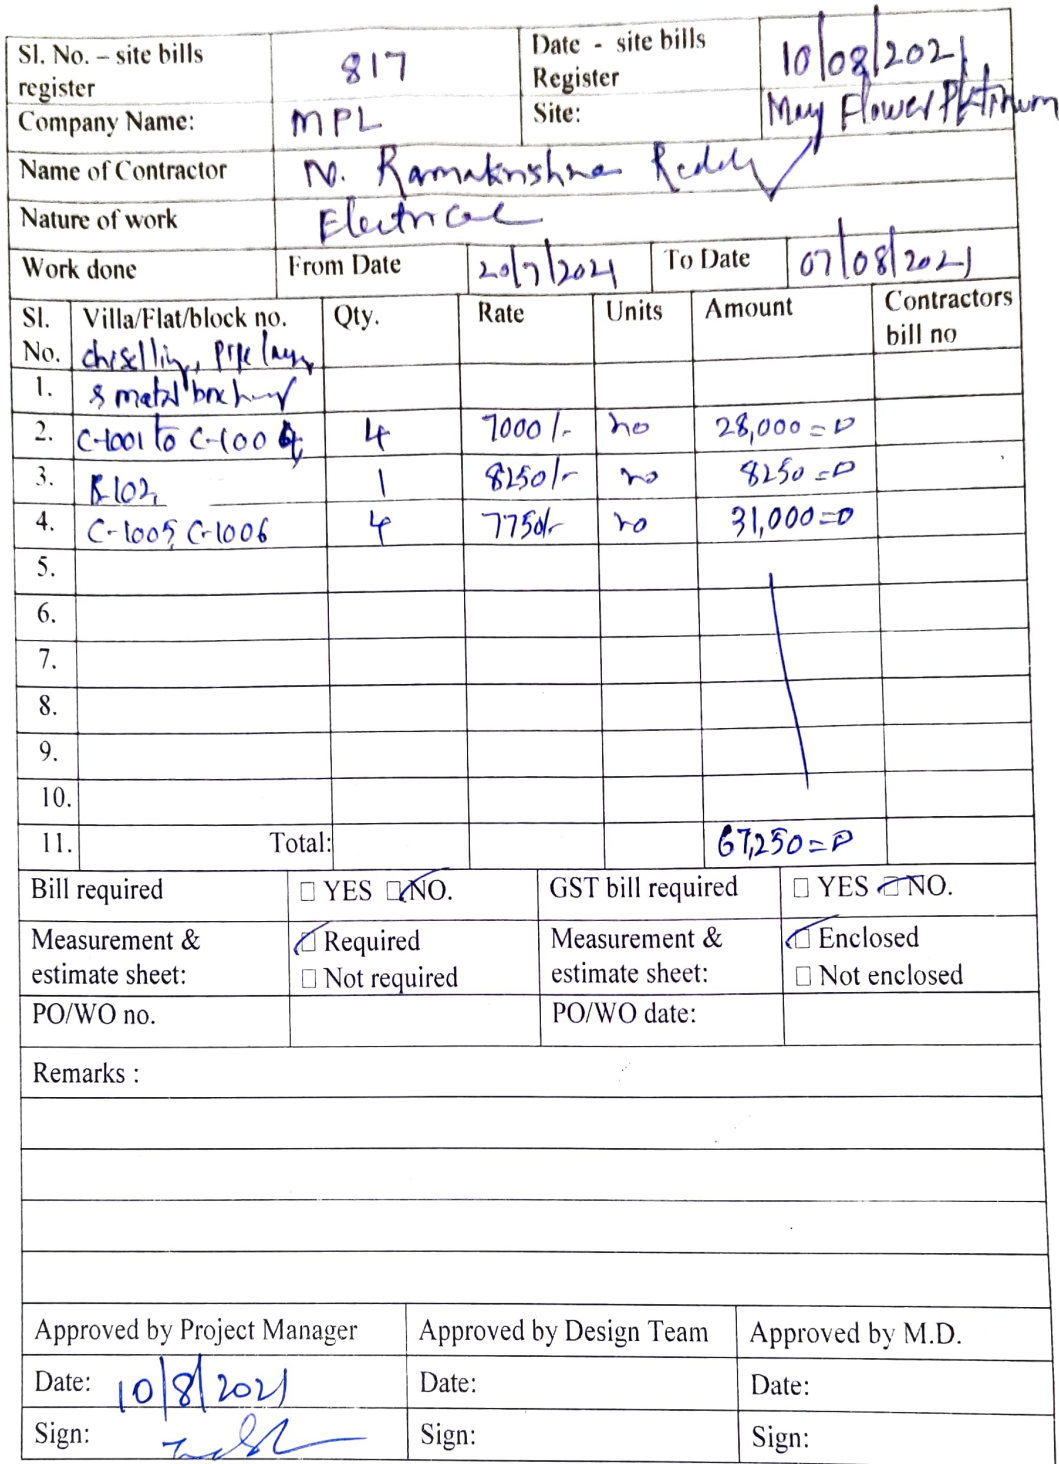 Sl. No. – site bills register 817 Date - site bills Register 10/08/2021
Company Name: MPL Site: May Flower Platinum
Name of Contractor N. Ramakrishna Reddy
Nature of work Electrical
Work done From Date 20/7/2021 To Date 07/08/2021
Sl. No. Villa/Flat/block no. Qty. Rate Units Amount Contractors bill no
chiselling, pipe laying
1. & metal box
2. C-1001 to C-1004 4 7000/- no 28,000=0
3. B-102, 1 8250/- no 8250=0
4. C-1005, C-1006 4 7750/- no 31,000=0
5.
6.
7.
8.
9.
10.
11. Total: 67,250=0
Bill required □ YES □ NO. GST bill required □ YES □ NO.
Measurement & estimate sheet: □ Required □ Not required Measurement & estimate sheet: □ Enclosed □ Not enclosed
PO/WO no. PO/WO date:
Remarks :
Approved by Project Manager Approved by Design Team Approved by M.D.
Date: 10/8/2021 Date: Date:
Sign: Sign: Sign: